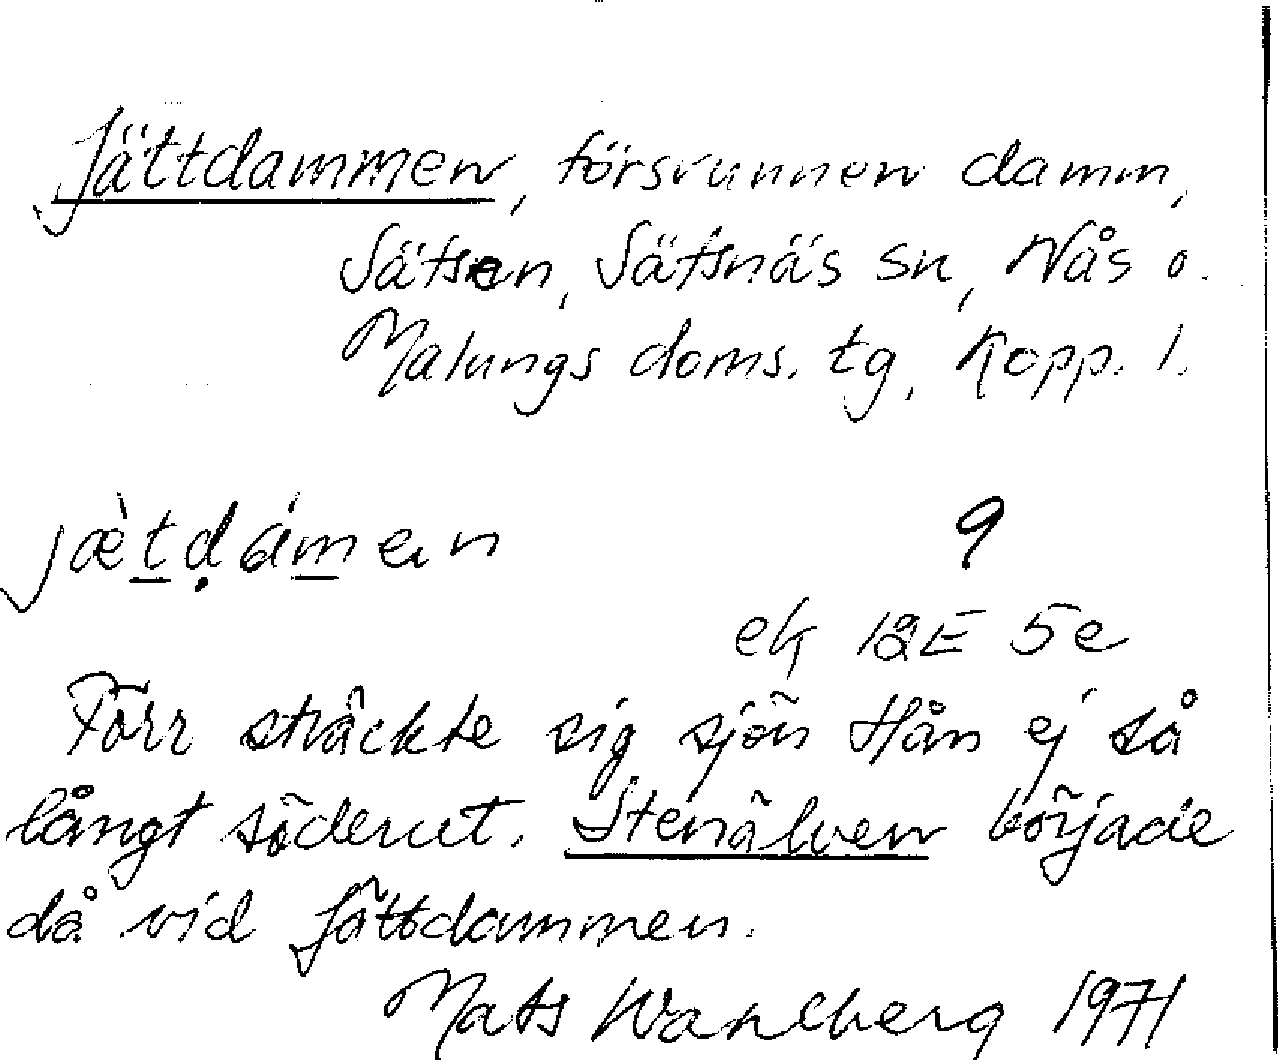 Jättdammen, försvunnen damm,
Sätsen, Sätsnäs sn, Nås o.
Malungs doms. tg, Kopp. l.
jæ̀tḍámen 9
ek 12E 5e
Förr sträckte sig sjön Hån ej så
långt söderut. Stenälven började
då vid Jättdammen.
Mats Wahlberg 1971